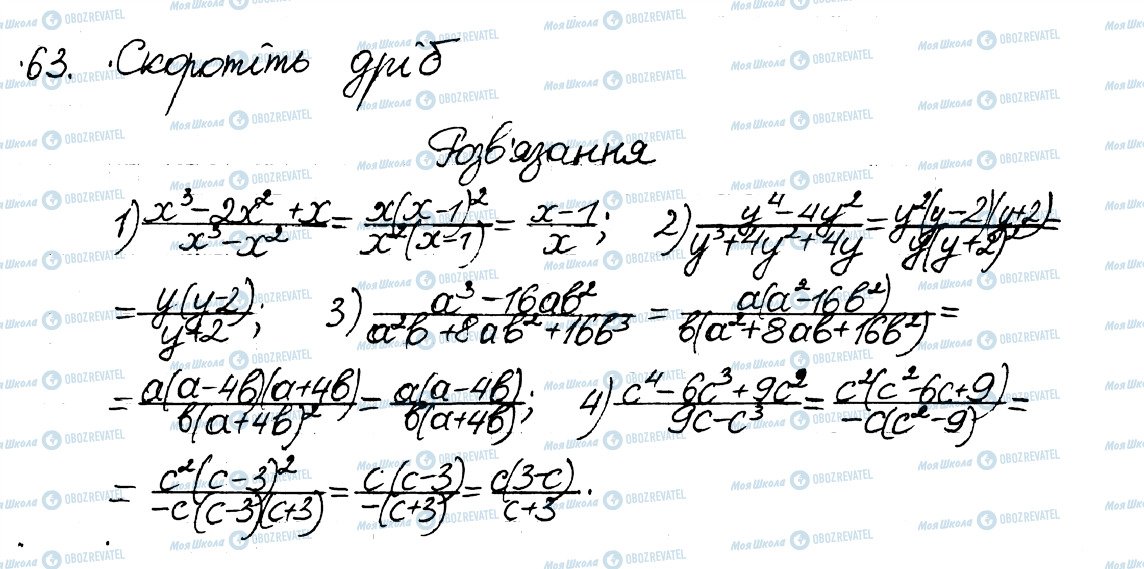 63. Скоротіть дріб
Розв'язання
1) (x³ − 2x² + x)/(x³ − x²) = x(x − 1)²/x²(x − 1) = (x − 1)/x; 2) (y⁴ − 4y²)/(y³ + 4y² + 4y) = y²(y − 2)(y + 2)/y(y + 2)² =
= y(y − 2)/(y + 2); 3) (a³ − 16ab²)/(a²b + 8ab² + 16b³) = a(a² − 16b²)/b(a² + 8ab + 16b²) =
= a(a − 4b)(a + 4b)/b(a + 4b)² = a(a − 4b)/b(a + 4b); 4) (c⁴ − 6c³ + 9c²)/(9c − c³) = c²(c² − 6c + 9)/−c(c² − 9) =
= c²(c − 3)²/−c(c − 3)(c + 3) = c(c − 3)/−(c + 3) = c(3 − c)/(c + 3).
Моя Школа OBOZREVATEL